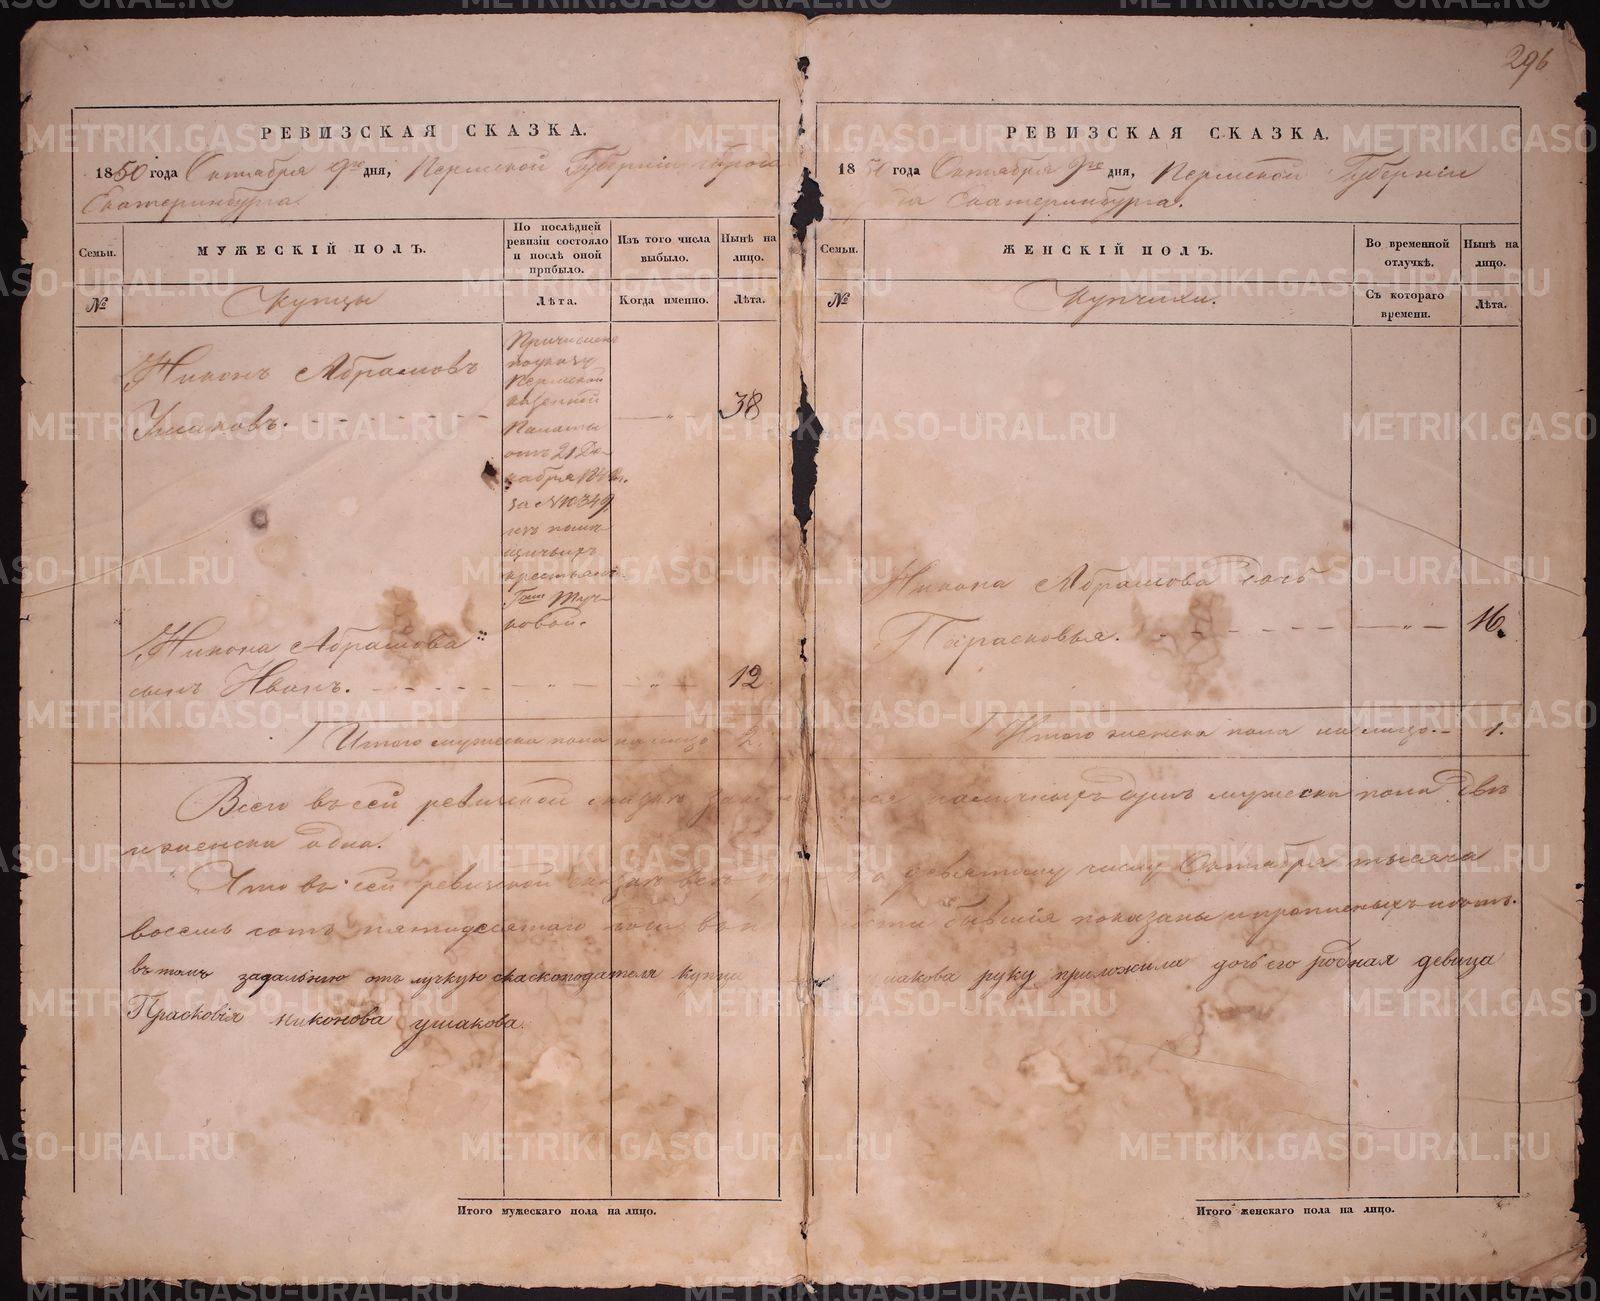 296
РЕВИЗСКАЯ СКАЗКА.
1850 года Октября 9го дня, Пермской Губерніи города
Екатеринбурга.
Семьи.
МУЖЕСКІЙ ПОЛЪ.
По послѣдней ревизіи состояло и послѣ оной прибыло.
Изъ того числа выбыло.
Нынѣ на лицо.
№
Купцы
Лѣта.
Когда именно.
Лѣта.
Никонъ Абрамовъ
Ушаковъ. 38
Причисленъ
по указу
Пермской
казенной
Палаты
отъ 21 Де-
кабря
за №
изъ помѣ-
щичьихъ
крестьянъ
Гжи Туч-
ковой.
Никона Абрамова
сынъ Иванъ. 12
Итого мужеска пола на лицо 2.
РЕВИЗСКАЯ СКАЗКА.
1850 года Октября 9го дня, Пермской Губерніи
Екатеринбурга.
Семьи.
ЖЕНСКІЙ ПОЛЪ.
Во временной отлучкѣ.
Нынѣ на лицо.
№
Купчихи.
Съ котораго времени.
Лѣта.
Никона Абрамова дочь
Парасковья. 16.
Итого женска пола на лицо. 1.
Всего въ сей ревизской сказкѣ наличныхъ душъ мужеска пола двѣ
и женска одна.
Что въ сей ревизской сказкѣ всѣ девятому числу Октября тысяча
восемь сотъ пятидесятаго года бывшія показаны и прописныхъ нѣтъ.
въ томъ задальнию отлучкую скаскоподателя купца шакова руку приложила дочь его родная девица
Прасковія Никонова ушакова.
Итого мужескаго пола на лицо.
Итого женскаго пола на лицо.
METRIKI.GASO-URAL.RU